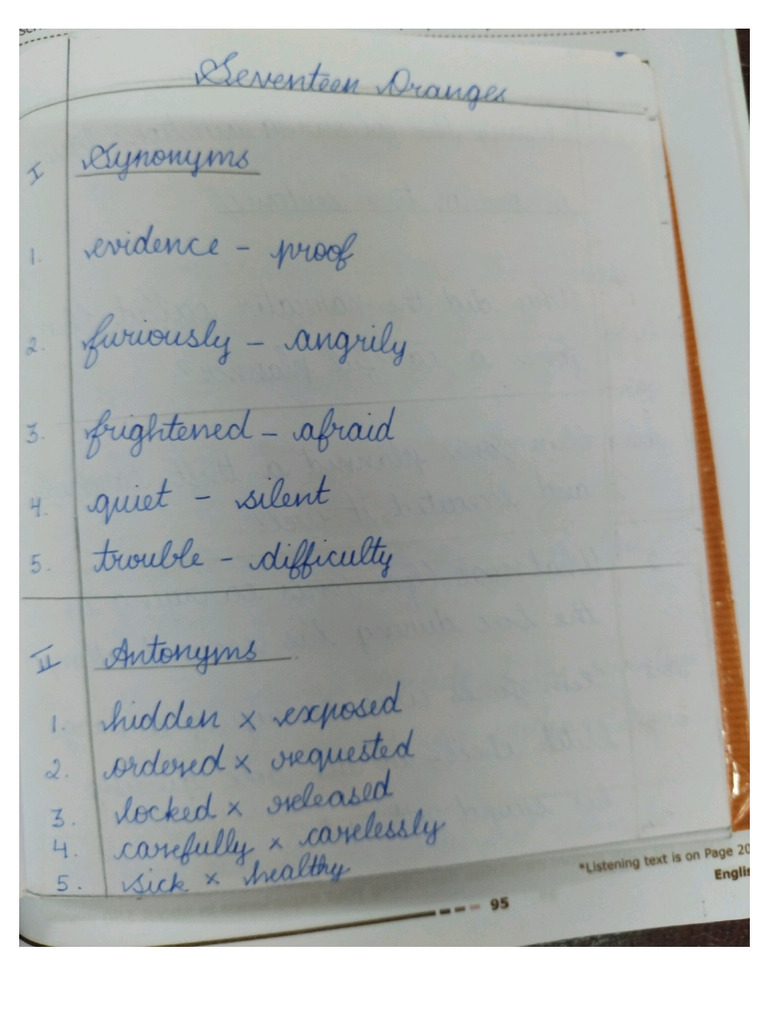 Seventeen Oranges
I Synonyms
1. evidence - proof
2. furiously - angrily
3. frightened - afraid
4. quiet - silent
5. trouble - difficulty
II Antonyms
1. hidden × exposed
2. ordered × requested
3. locked × released
4. carefully × carelessly
5. sick × healthy
*Listening text is on Page 20
Englis
95